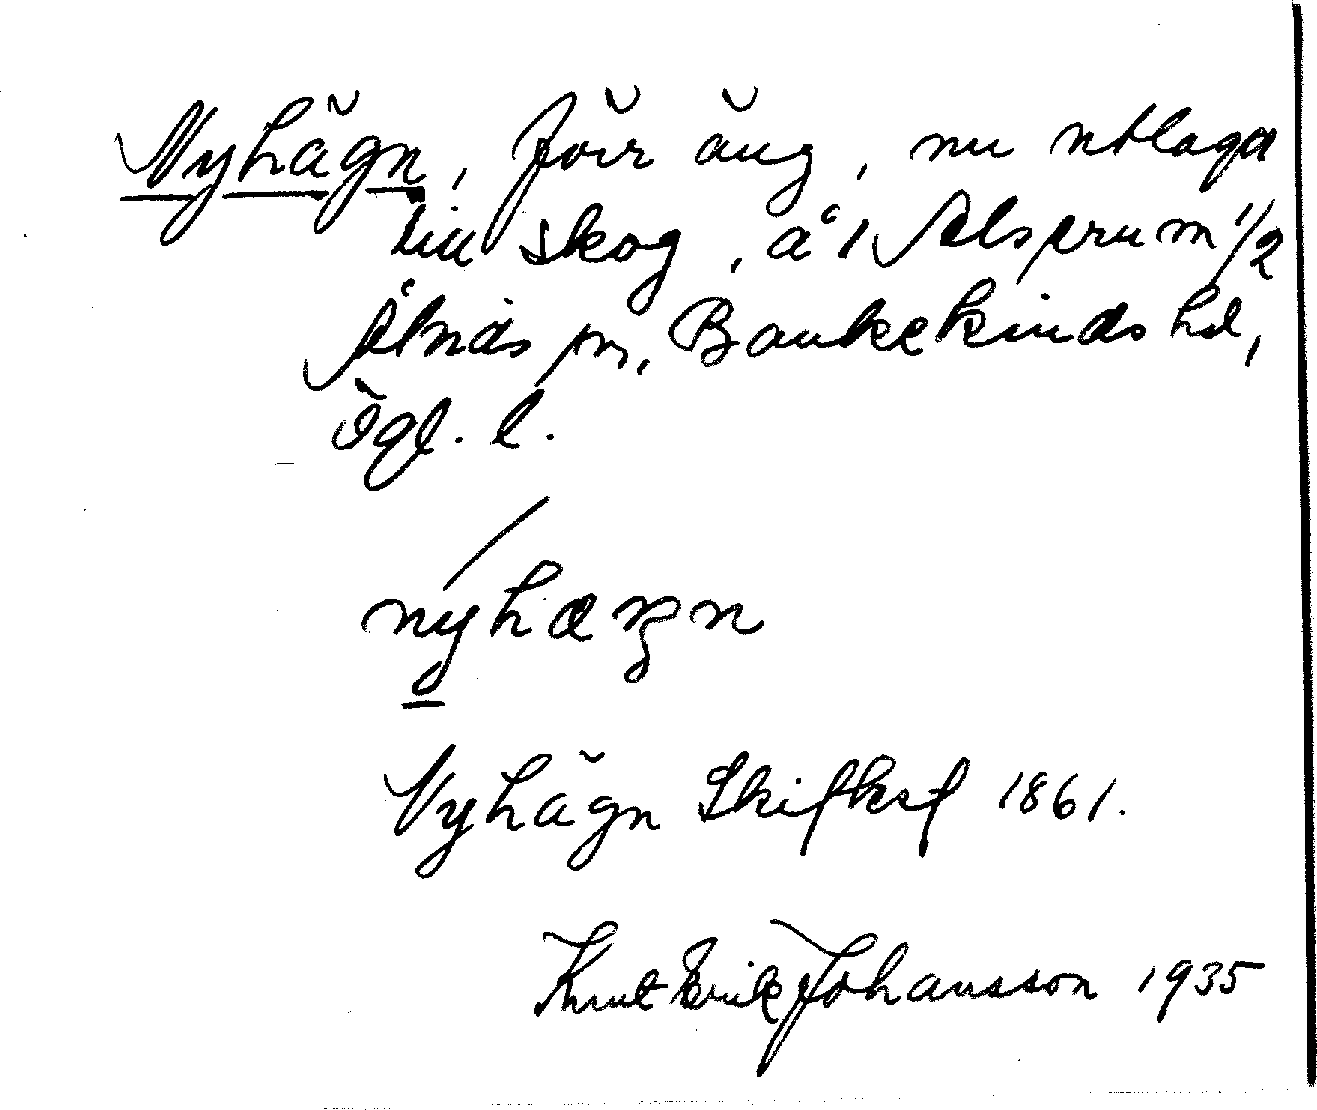 Nyhägn, förr äng, nu utlaga
till skog, å 1 Alsprum 1/2
Åtvids sn, Bankekinds hd,
Ögl. l.
nyhægn
Nyhägn Skifksf 1861.
Knut Erik Johansson 1935